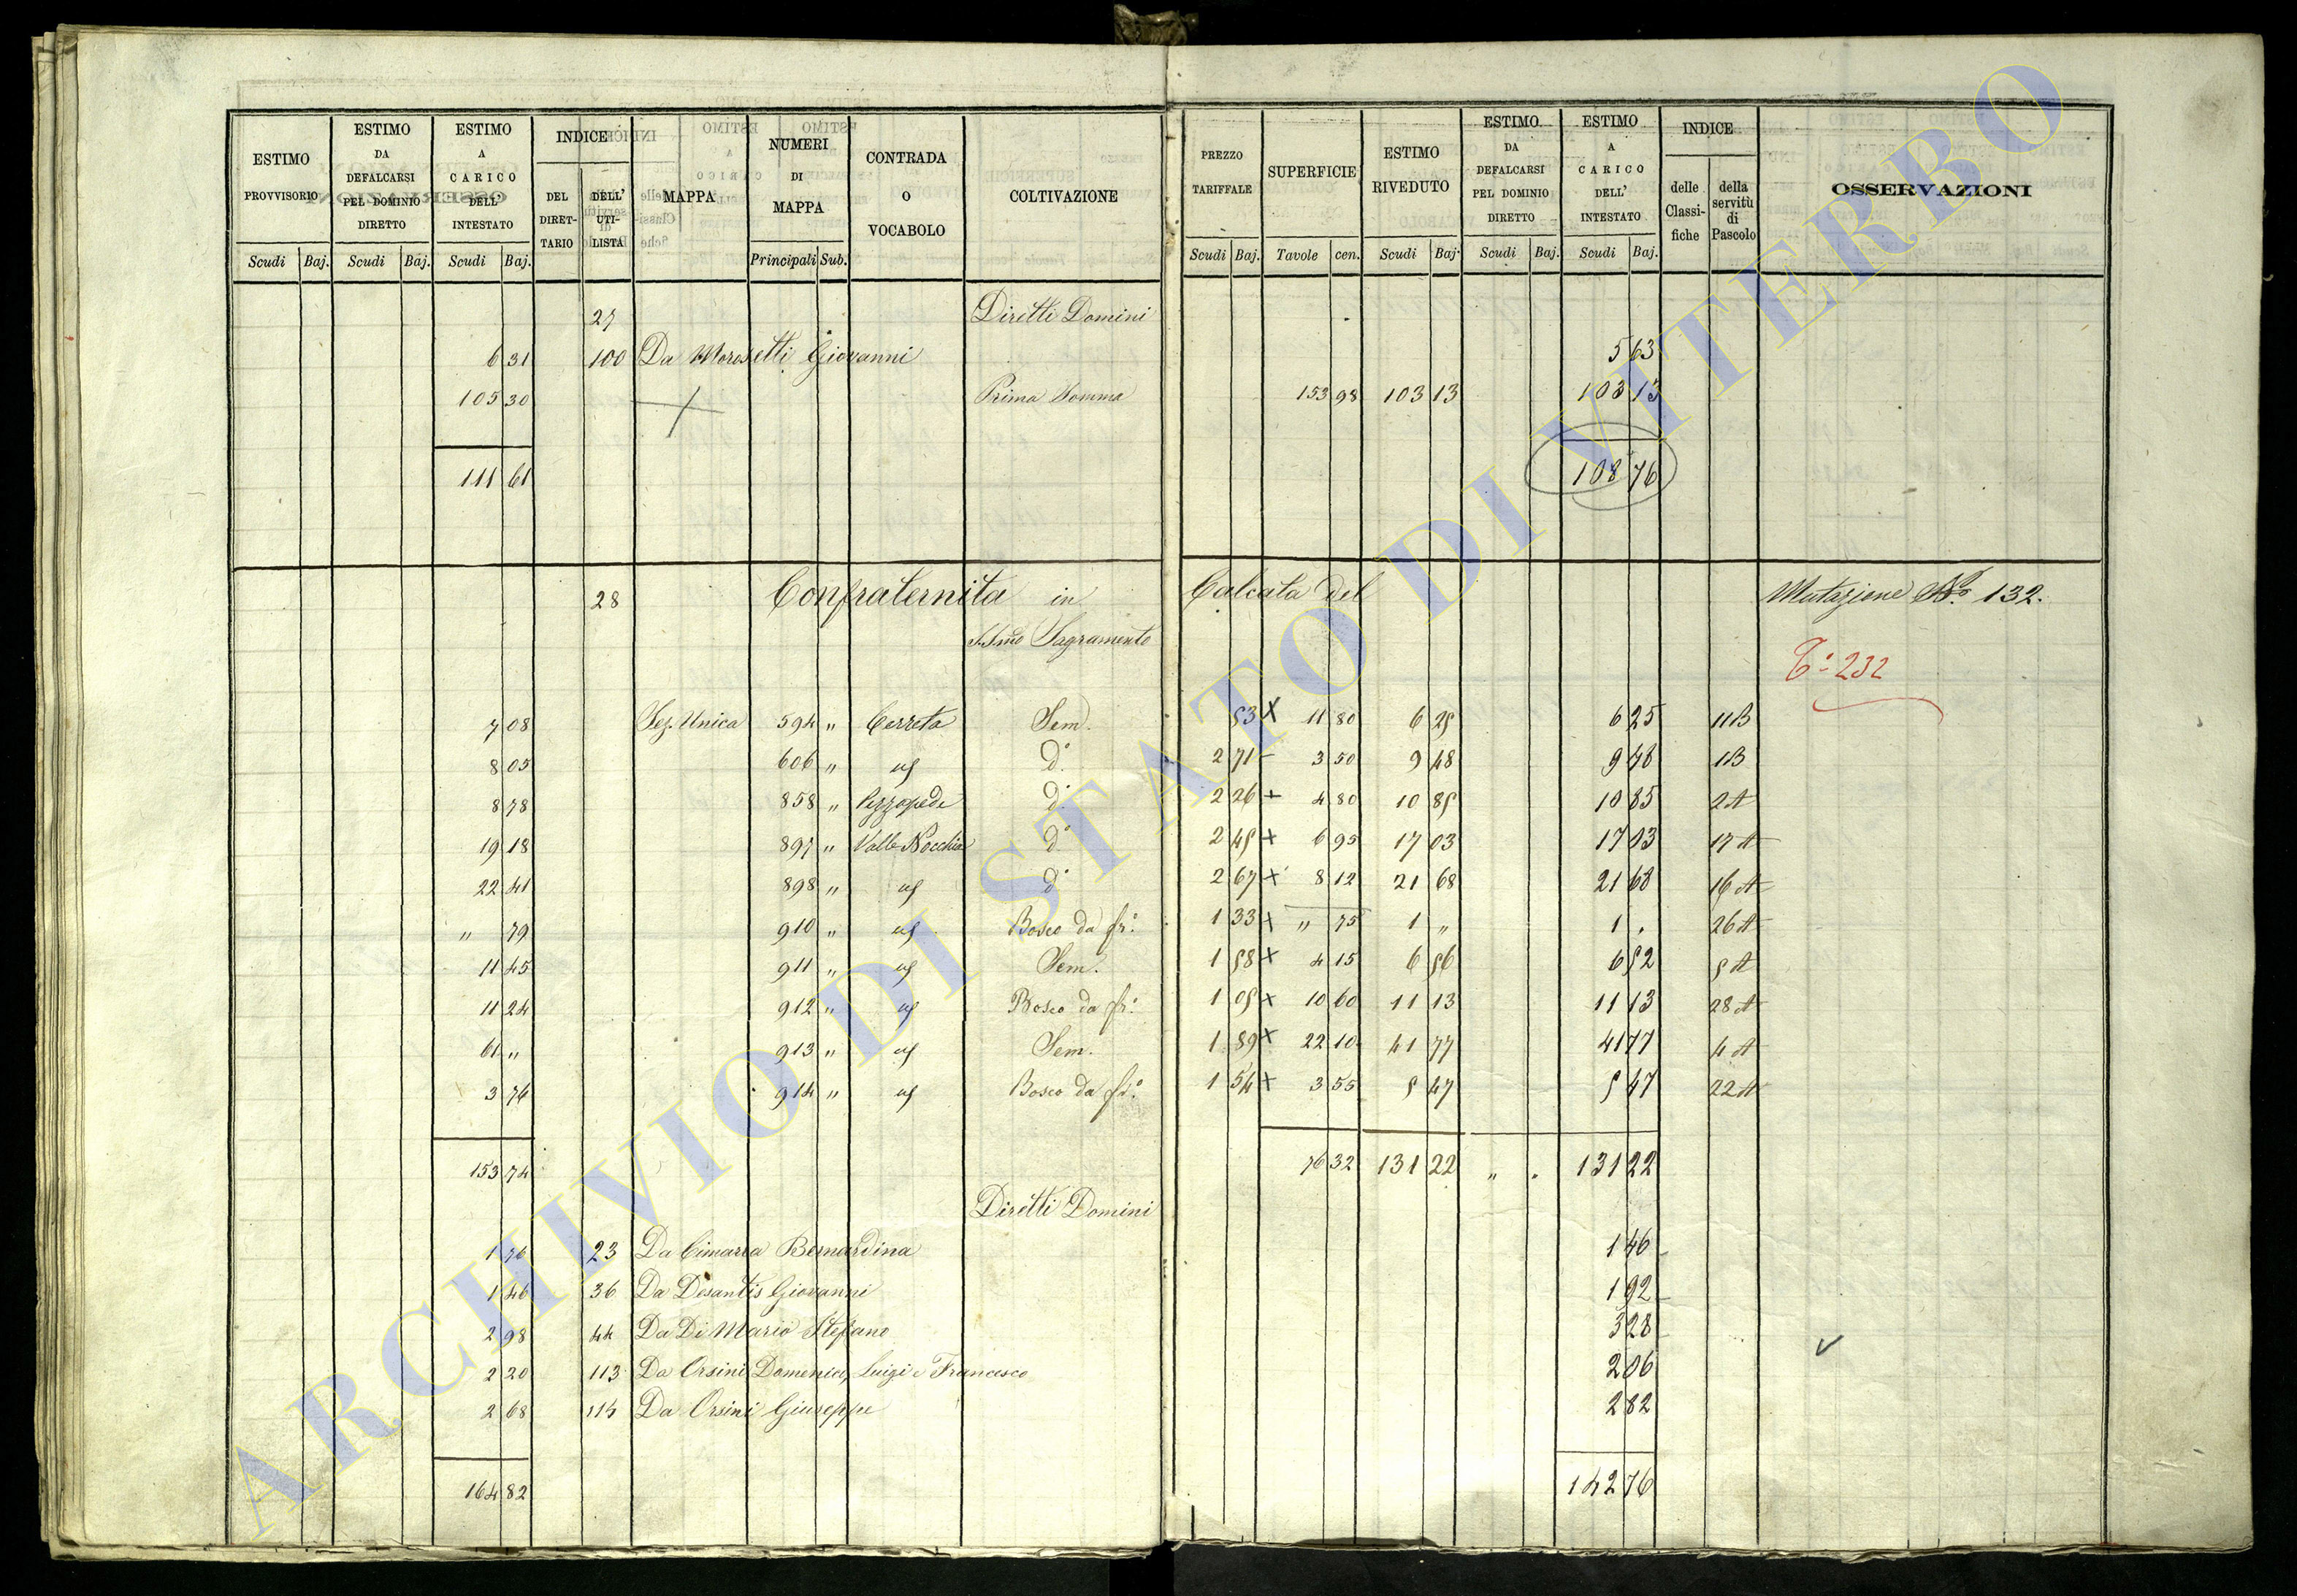 ESTIMO PROVVISORIO | ESTIMO DA DEFALCARSI PEL DOMINIO DIRETTO | ESTIMO A CARICO DELL' INTESTATO | INDICE DEL DIRETTARIO | DELL' UTILISTA | MAPPA | NUMERI DI MAPPA | CONTRADA O VOCABOLO | COLTIVAZIONE | PREZZO TARIFFALE | SUPERFICIE | ESTIMO RIVEDUTO | ESTIMO DA DEFALCARSI PEL DOMINIO DIRETTO | ESTIMO A CARICO DELL' INTESTATO | INDICE delle Classifiche | della servitù di Pascolo | OSSERVAZIONI
Scudi Baj. | Scudi Baj. | Scudi Baj. | Principali Sub. | Scudi Baj. | Tavole cen. | Scudi Baj. | Scudi Baj. | Scudi Baj.
27 Diretti Domini
6 31 100 Da Morosetti Giovanni 5 63
105 30 Prima Somma 153 98 103 13 103 13
111 61 108 76
28 Confraternita in Calcata del Mutazione No. 132.
SSmo Sagramento
232
7 08 Sez. Unica 594 " Cerreta Sem. 53 X 11 80 6 25 6 25 11 B
8 05 606 " us d° 2 71 - 3 50 9 48 9 48 1 B
8 78 858 " Pizzopede d° 2 26 + 4 80 10 85 10 85 2 A
19 18 897 " Valle Nocchia d° 2 45 + 6 95 17 03 17 03 17 A
22 41 898 " us d° 2 67 + 8 12 21 68 21 68 16 A
" 79 910 " us Bosco da fr.° 1 33 + " 75 1 " 1 " 26 A
11 45 911 " us Sem. 1 58 + 4 15 6 56 6 52 5 A
11 24 912 " us Bosco da fr.° 1 05 + 10 60 11 13 11 13 28 A
61 " 913 " us Sem. 1 89 + 22 10 41 77 41 77 4 A
3 76 914 " us Bosco da fr.° 1 54 + 3 55 5 47 5 47 22 A
153 74 76 32 131 22 " " 131 22
Diretti Domini
1 76 23 Da Cimarra Bernardina 1 46
1 46 36 Da Desantis Giovanni 1 92
2 98 44 Da Di Mario Stefano 3 28
2 20 113 Da Orsini Domenico, Luigi e Francesco 2 06
2 68 114 Da Orsini Giuseppe 2 82
164 82 142 76
ARCHIVIO DI STATO DI VITERBO